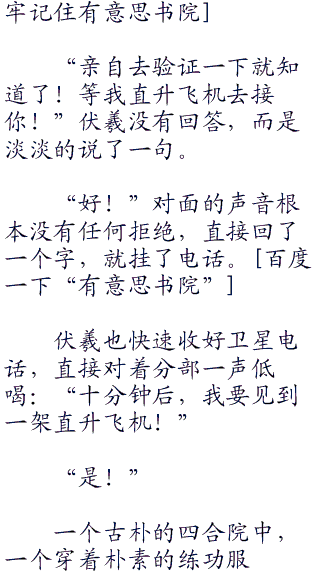 牢记住有意思书院]
“亲自去验证一下就知
道了！等我直升飞机去接
你！”伏羲没有回答，而是
淡淡的说了一句。
“好！”对面的声音根
本没有任何拒绝，直接回了
一个字，就挂了电话。[百度
一下“有意思书院”]
伏羲也快速收好卫星电
话，直接对着分部一声低
喝：“十分钟后，我要见到
一架直升飞机！”
“是！”
一个古朴的四合院中，
一个穿着朴素的练功服